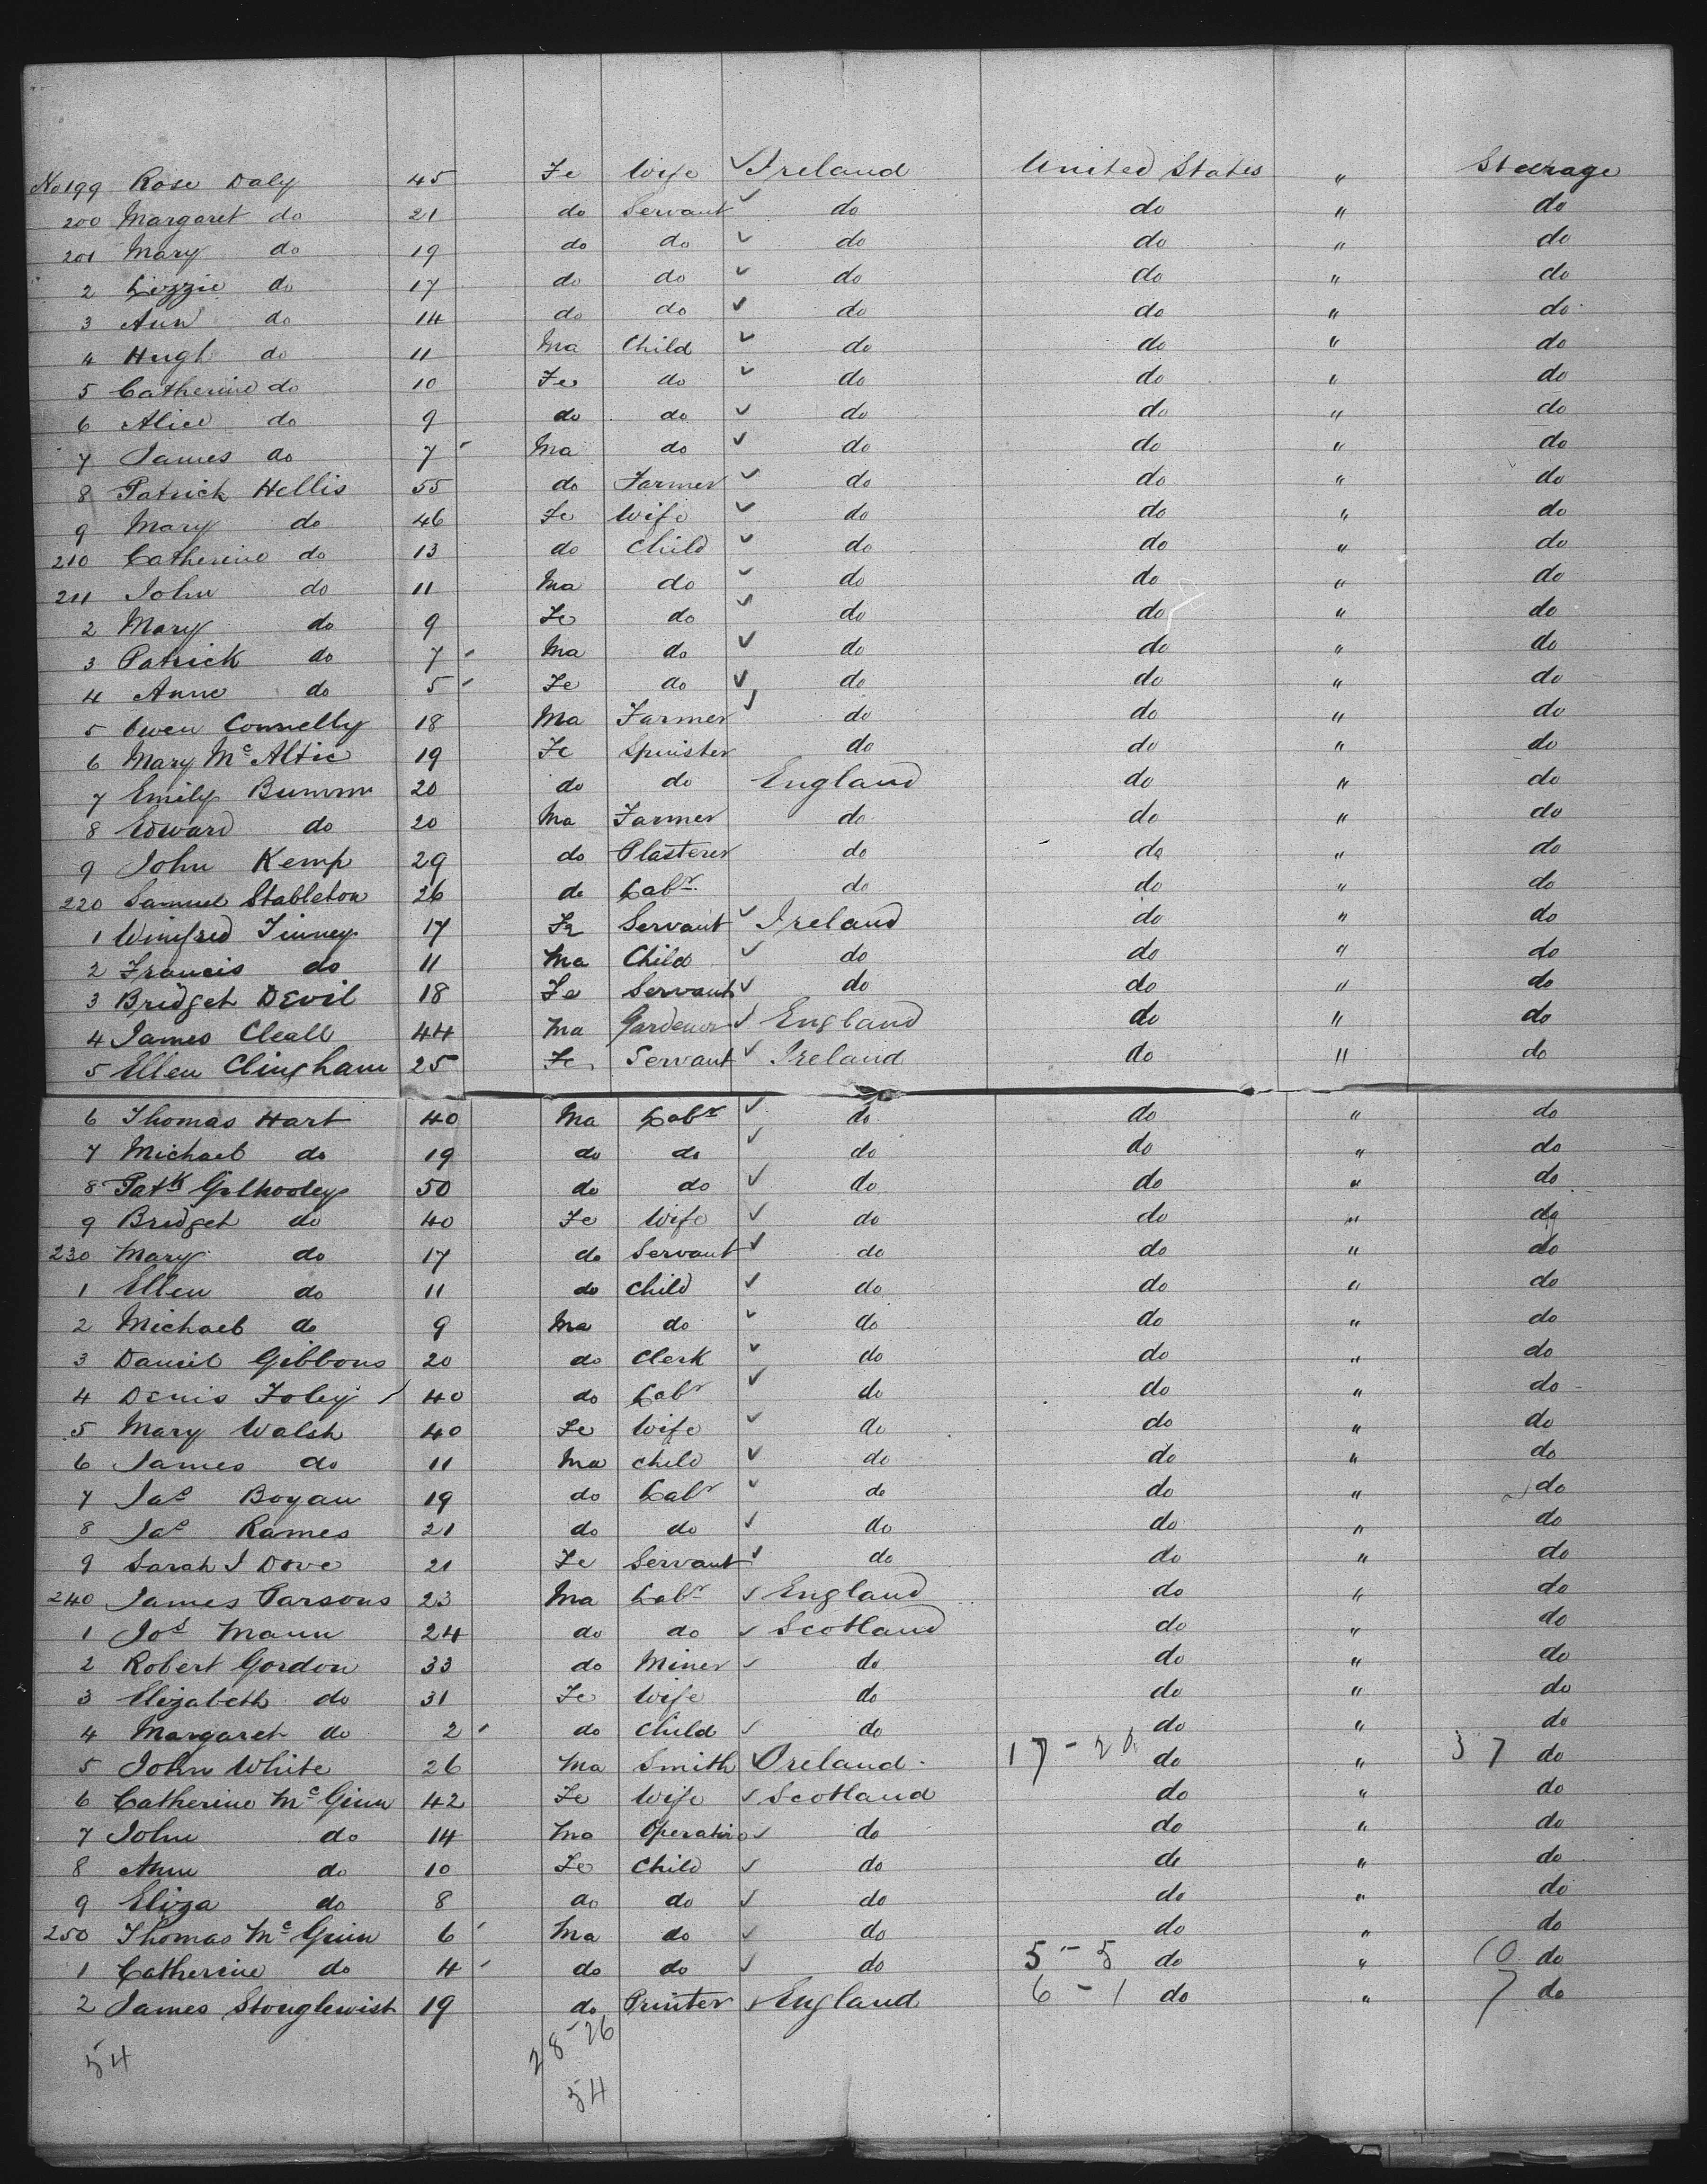 No 199 Rose Daly 45 Fe Wife ✓ Ireland United States " Steerage
200 Margaret do 21 do Servant ✓ do do " do
201 Mary do 19 do do ✓ do do " do
2 Lizzie do 17 do do ✓ do do " do
3 Ann do 14 do do ✓ do do " do
4 Hugh do 11 Ma Child ✓ do do " do
5 Catherine do 10 Fe do ✓ do do " do
6 Alice do 9 do do ✓ do do " do
7 James do 7 Ma do ✓ do do " do
8 Patrick Hellis 55 do Farmer ✓ do do " do
9 Mary do 46 Fe Wife ✓ do do " do
210 Catherine do 13 do Child ✓ do do " do
211 John do 11 Ma do ✓ do do " do
2 Mary do 9 Fe do ✓ do do " do
3 Patrick do 7 Ma do ✓ do do " do
4 Anne do 5 Fe do ✓ do do " do
5 Owen Connelly 18 Ma Farmer ✓ do do " do
6 Mary Mc Altic 19 Fe Spinister do do " do
7 Emily 20 do do England do " do
8 Edward do 20 Ma Farmer do do " do
9 John Kemp 29 do Plasterer do do " do
220 Samuel Stableton 26 do Labr do do " do
1 Winifred Finney 17 Fe Servant ✓ Ireland do " do
2 Francis do 11 Ma Child ✓ do do " do
3 Bridget Devil 18 Fe Servant ✓ do do " do
4 James Cleall 44 Ma Gardener ✓ England do " do
5 Ellen Clingham 25 Fe Servant ✓ Ireland do " do
6 Thomas Hart 40 Ma Labr ✓ do do " do
7 Michael do 19 do do ✓ do do " do
8 Patk Gilhooley 50 do do ✓ do do " do
9 Bridget do 40 Fe Wife ✓ do do " do
230 Mary do 17 do Servant ✓ do do " do
1 Ellen do 11 do Child ✓ do do " do
2 Michael do 9 Ma do ✓ do do " do
3 Daniel Gibbons 20 do Clerk ✓ do do " do
4 Denis Foley 40 do Labr ✓ do do " do
5 Mary Walsh 40 Fe Wife ✓ do do " do
6 James do 11 Ma child ✓ do do " do
7 Jas Boyan 19 do Labr ✓ do do " do
8 Jas Rames 21 do do ✓ do do " do
9 Sarah J Dove 21 Fe Servant ✓ do do " do
240 James Parsons 23 Ma Labr ✓ England do " do
1 Jos Mann 24 do do ✓ Scotland do " do
2 Robert Gordon 33 do Miner ✓ do do " do
3 Elizabeth do 31 Fe Wife do do " do
4 Margaret do 2 do Child ✓ do do " do
5 John White 26 Ma Smith Ireland 17 - 20 do " 37 do
6 Catherine Mc Ginn 42 Fe Wife ✓ Scotland do " do
7 John do 14 Ma Operative ✓ do do " do
8 Ann do 10 Fe Child ✓ do do " do
9 Eliza do 8 do do ✓ do do " do
250 Thomas Mc Ginn 6 Ma do ✓ do do " do
1 Catherine do 4 do do ✓ do 5 - 5 do " 10 do
2 James 19 do Printer ✓ England 6 - 1 do " 7 do
54 28-26
54